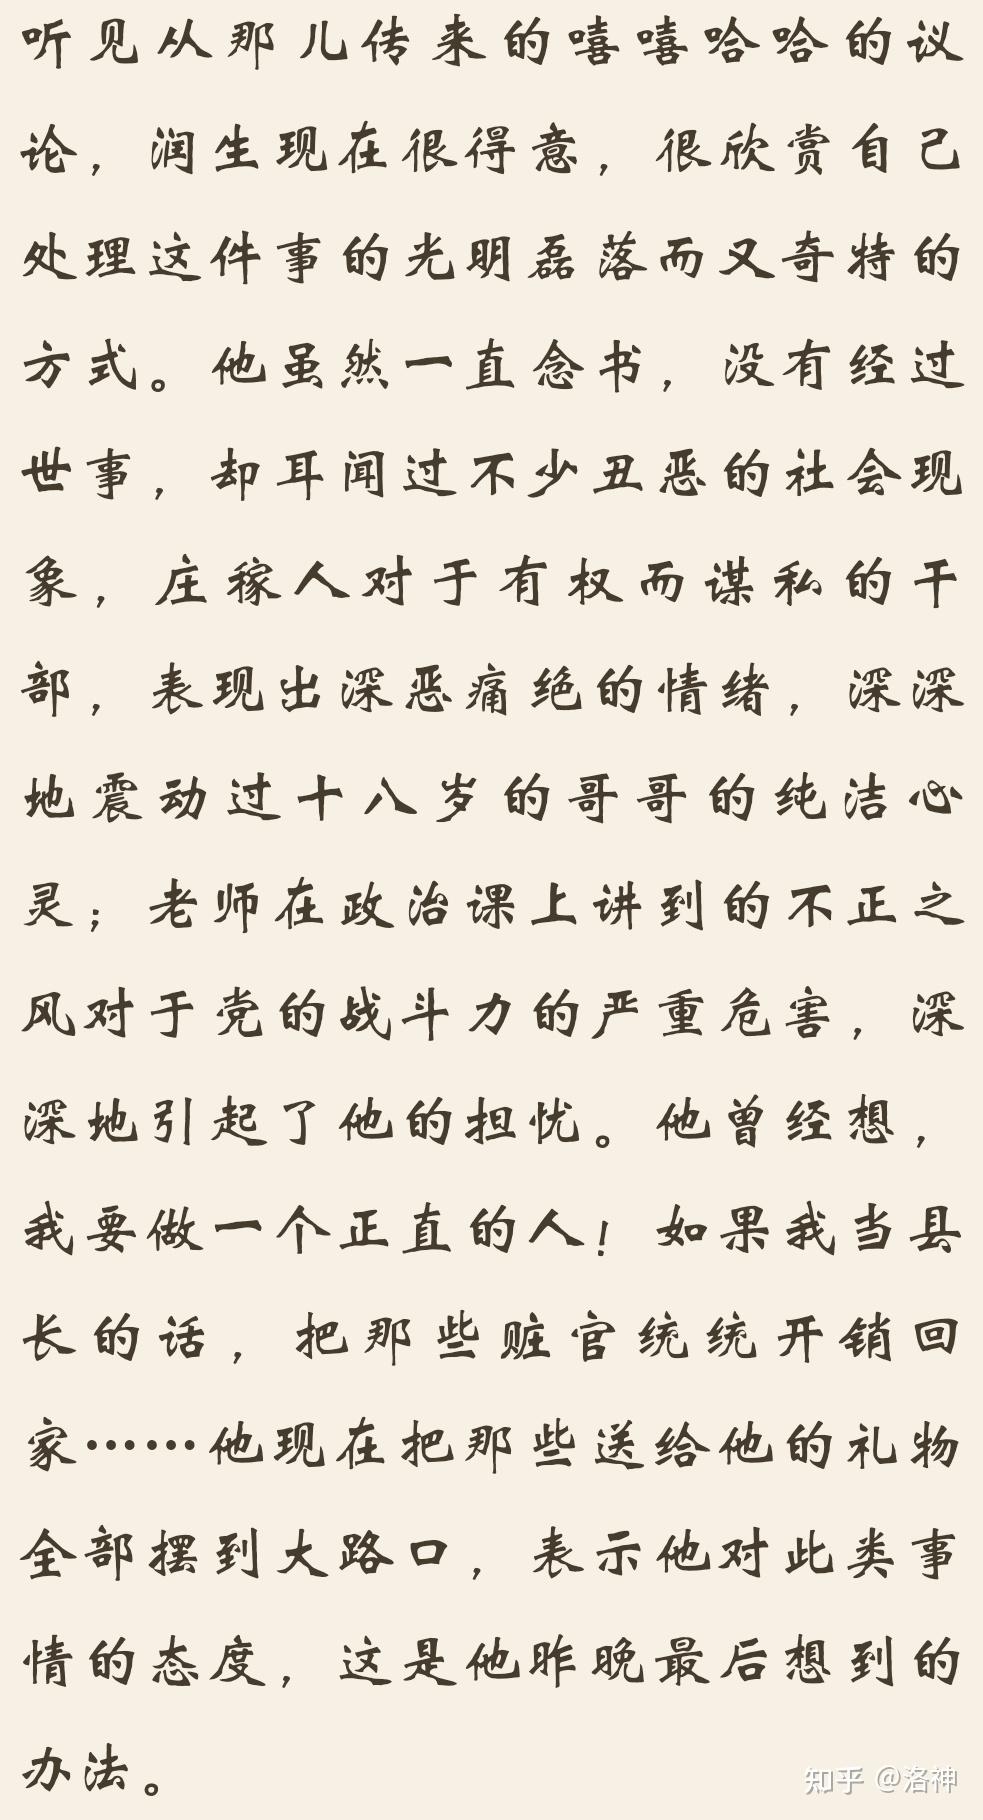 听见从那儿传来的嘻嘻哈哈的议
论，润生现在很得意，很欣赏自己
处理这件事的光明磊落而又奇特的
方式。他虽然一直念书，没有经过
世事，却耳闻过不少丑恶的社会现
象，庄稼人对于有权而谋私的干
部，表现出深恶痛绝的情绪，深深
地震动过十八岁的哥哥的纯洁心
灵；老师在政治课上讲到的不正之
风对于党的战斗力的严重危害，深
深地引起了他的担忧。他曾经想，
我要做一个正直的人！如果我当县
长的话，把那些赃官统统开销回
家……他现在把那些送给他的礼物
全部摆到大路口，表示他对此类事
情的态度，这是他昨晚最后想到的
办法。
知乎 @洛神